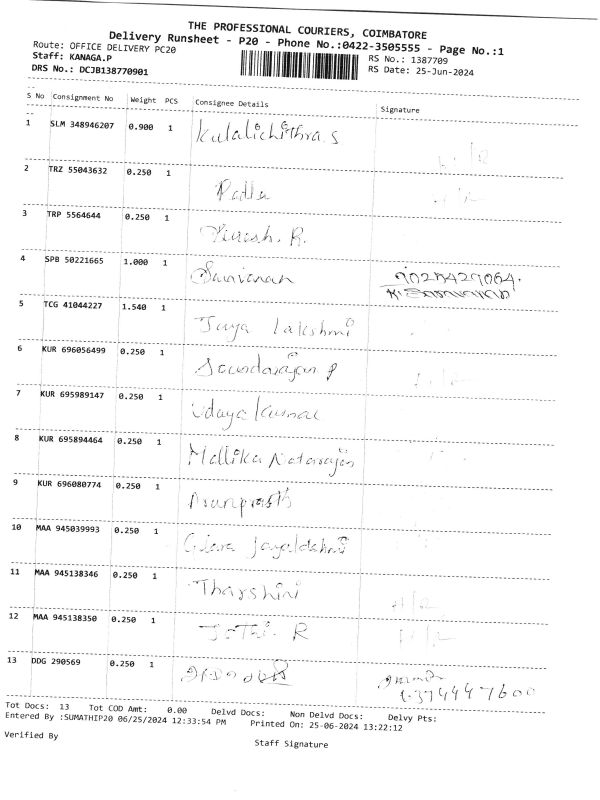 THE PROFESSIONAL COURIERS, COIMBATORE
Delivery Runsheet - P20 - Phone No.:0422-3505555 - Page No.:1
Route: OFFICE DELIVERY PC20 RS No.: 1387709
Staff: KANAGA.P RS Date: 25-Jun-2024
DRS No.: DCJB138770901
S No Consignment No Weight PCS Consignee Details Signature
1 SLM 348946207 0.900 1 Kulalichithra.S
2 TRZ 55043632 0.250 1
3 TRP 5564644 0.250 1
4 SPB 50221665 1.000 1 Saravanan
5 TCG 41044227 1.540 1 Jaya Lakshmi
6 KUR 696056499 0.250 1 Soundarajan P
7 KUR 695989147 0.250 1 Udaya Kumar
8 KUR 695894464 0.250 1 Mallika Natarajan
9 KUR 696080774 0.250 1 Arunprasth
10 MAA 945039993 0.250 1
11 MAA 945138346 0.250 1 Tharshini
12 MAA 945138350 0.250 1 Jothi. R
13 DDG 290569 0.250 1
Tot Docs: 13 Tot COD Amt: 0.00 Delvd Docs: Non Delvd Docs: Delvy Pts:
Entered By :SUMATHIP20 06/25/2024 12:33:54 PM Printed On: 25-06-2024 13:22:12
Verified By
Staff Signature